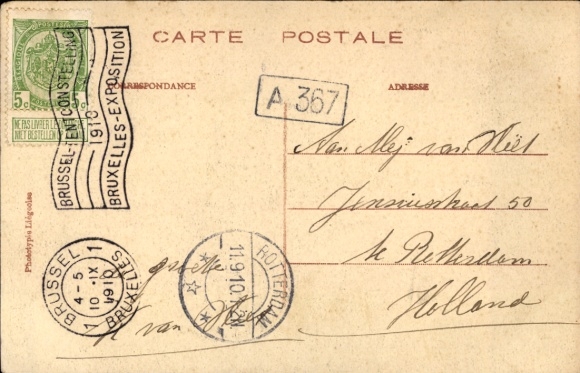 CARTE POSTALE
CORRESPONDANCE
ADRESSE
BELGIQUE
5c 5c
NE PAS LIVRER LE DIMANCHE
NIET BESTELLEN OP ZONDAG
BRUSSEL-TENTOONSTELLING
1910
BRUXELLES-EXPOSITION
A 367
Aan Mej van
50
te Rotterdam
Holland
Phototypie Liégeoise
BRUSSEL 1
4-5
10 IX
1910
1 BRUXELLES
ROTTERDAM
11.9.10
groete
van